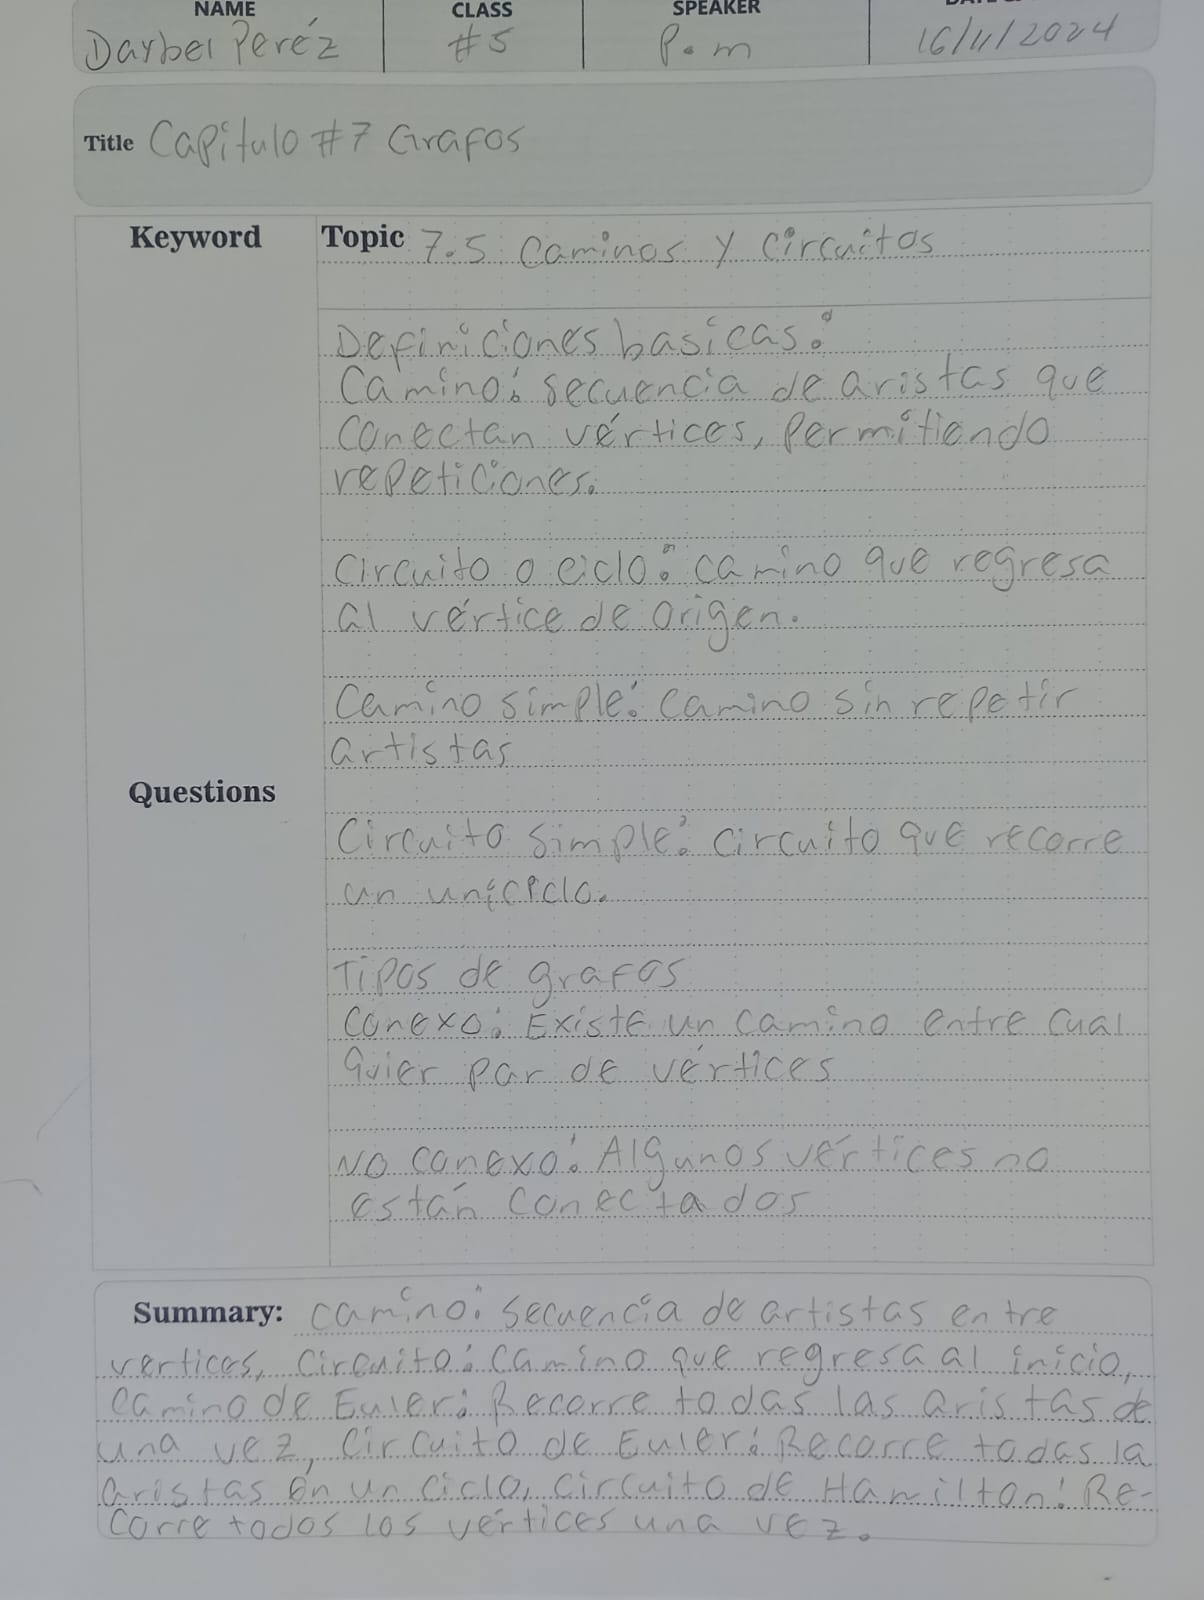 NAME CLASS SPEAKER
Darbel Peréz #5 P.m 16/11/2024
Title Capitulo #7 Grafos
Keyword Topic 7.5 Caminos y circuitos
Definiciones basicas:
Camino: secuencia de aristas que
conectan vértices, permitiendo
repeticiones.
Circuito o ciclo: camino que regresa
al vértice de origen.
Camino simple: camino sin repetir
artistas
Questions
Circuito simple: circuito que recorre
un
Tipos de grafos
Conexo: Existe un camino entre cual
quier par de vértices
No conexo: Algunos vértices no
están conectados
Summary: camino: secuencia de artistas entre
vertices, circuito: camino que regresa al inicio,
camino de Euler: Recorre todas las aristas de
una vez, circuito de Euler: Recorre todas la
aristas en un ciclo, circuito de Hamilton: Re-
corre todos los vértices una vez.